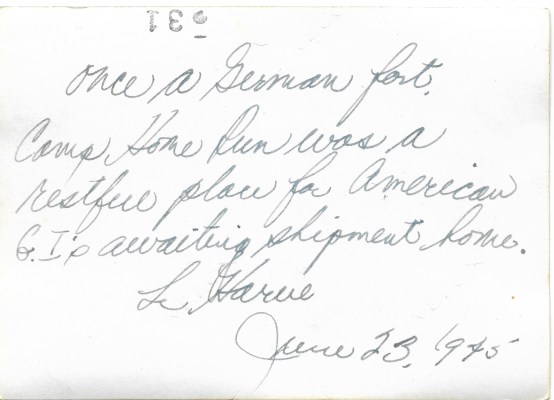 - 931
once a German fort,
Camp Home Run was a
restful place for American
G.I's awaiting shipment home.
Le Havre
June 23, 1945